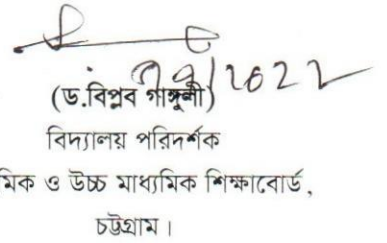 (ড.বিপ্লব গাঙ্গুলী)
বিদ্যালয় পরিদর্শক
মিক ও উচ্চ মাধ্যমিক শিক্ষাবোর্ড,
চট্টগ্রাম।